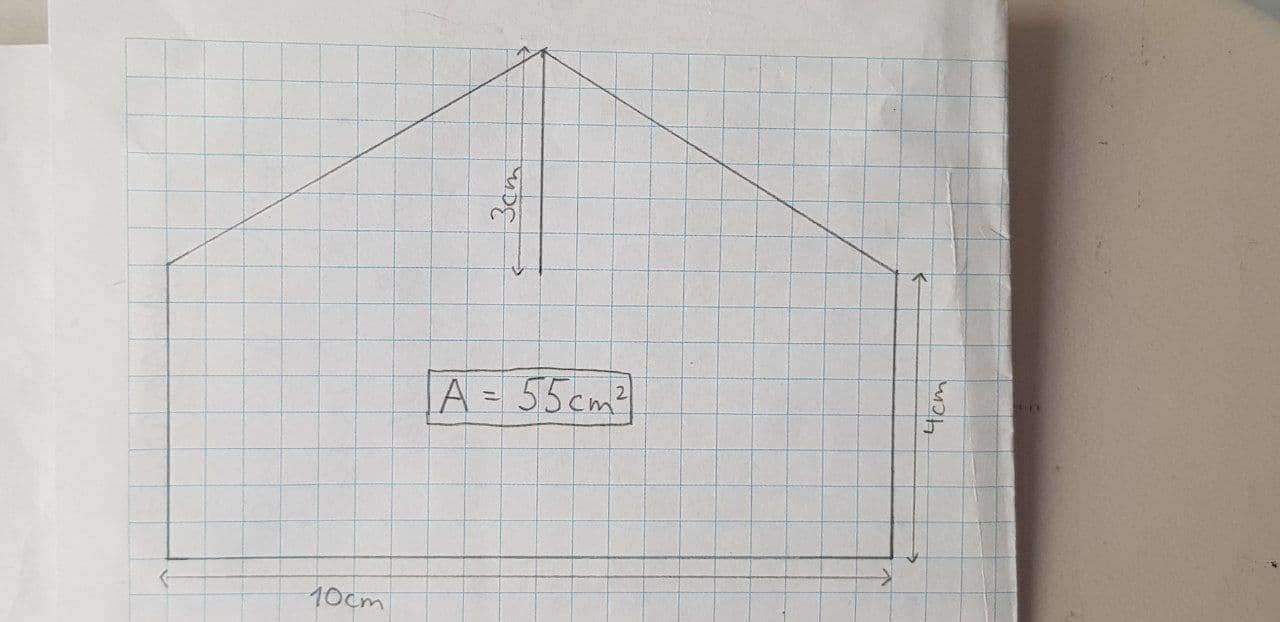 3cm
A = 55cm²
4cm
10cm